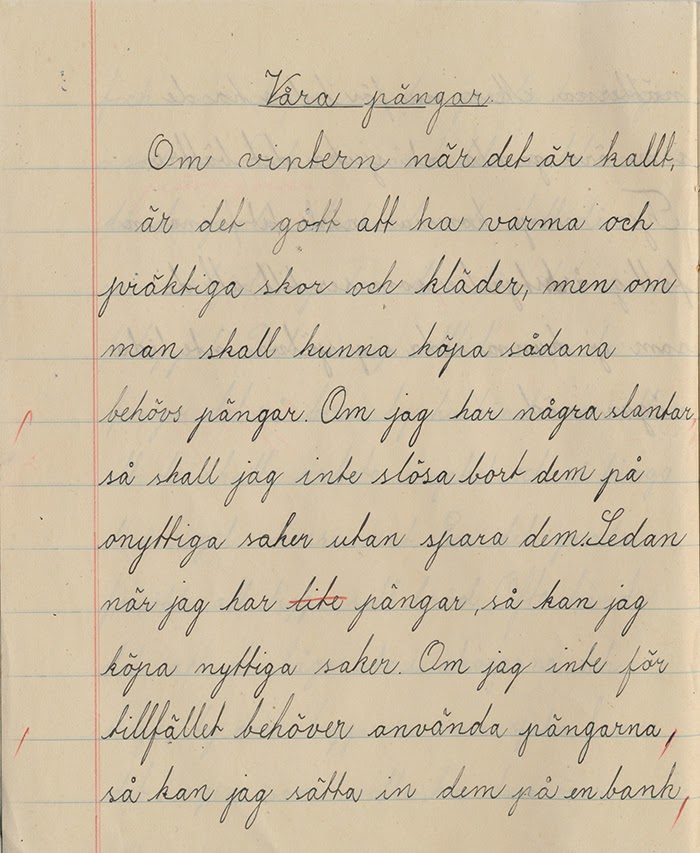 Våra pängar.
Om vintern när det är kallt,
är det gott att ha varma och
präktiga skor och kläder, men om
man skall kunna köpa sådana
behövs pängar. Om jag har några slantar,
så skall jag inte slösa bort dem på
onyttiga saker utan spara dem. Sedan
när jag har lite pängar, så kan jag
köpa nyttiga saker. Om jag inte för
tillfället behöver använda pängarna,
så kan jag sätta in dem på en bank,